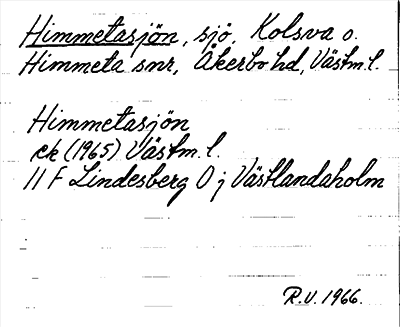 Himmetasjön, sjö, Kolsva o.
Himmeta snr, Åkerbo hd, Västm.l.
Himmetasjön
ek (1965) Västm. l.
11 F Lindesberg 0 j Västlandaholm
R.V. 1966.